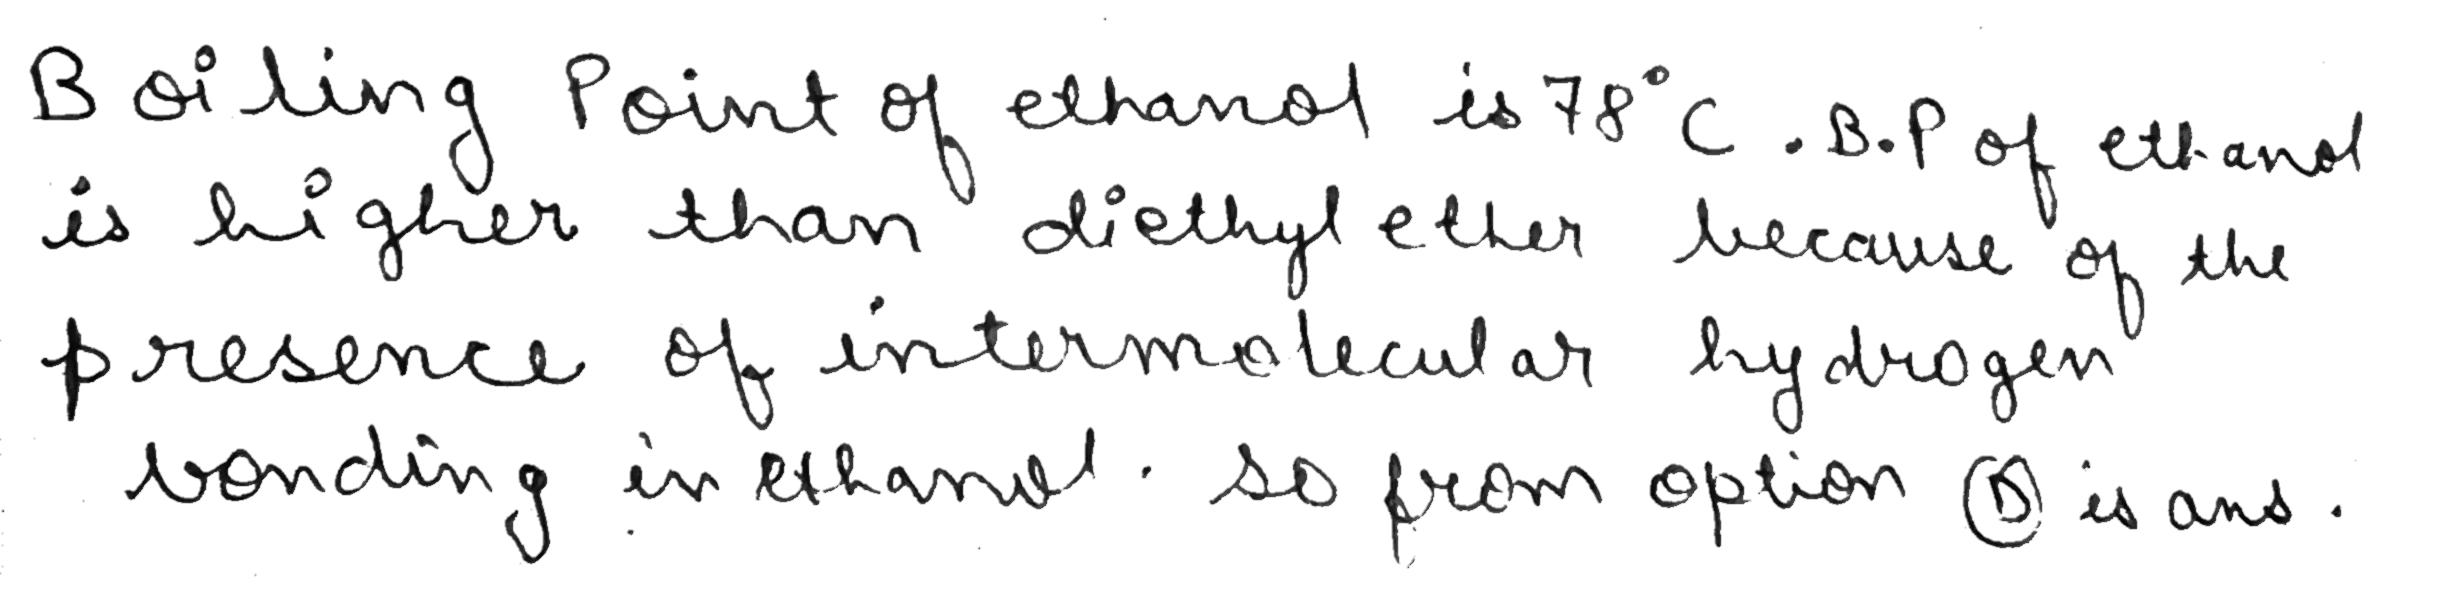 Boiling Point of ethanol is 78°C. B.P of ethanol
is higher than diethyl ether because of the
presence of intermolecular hydrogen
bonding in ethanol. so from option Ⓓ is ans.